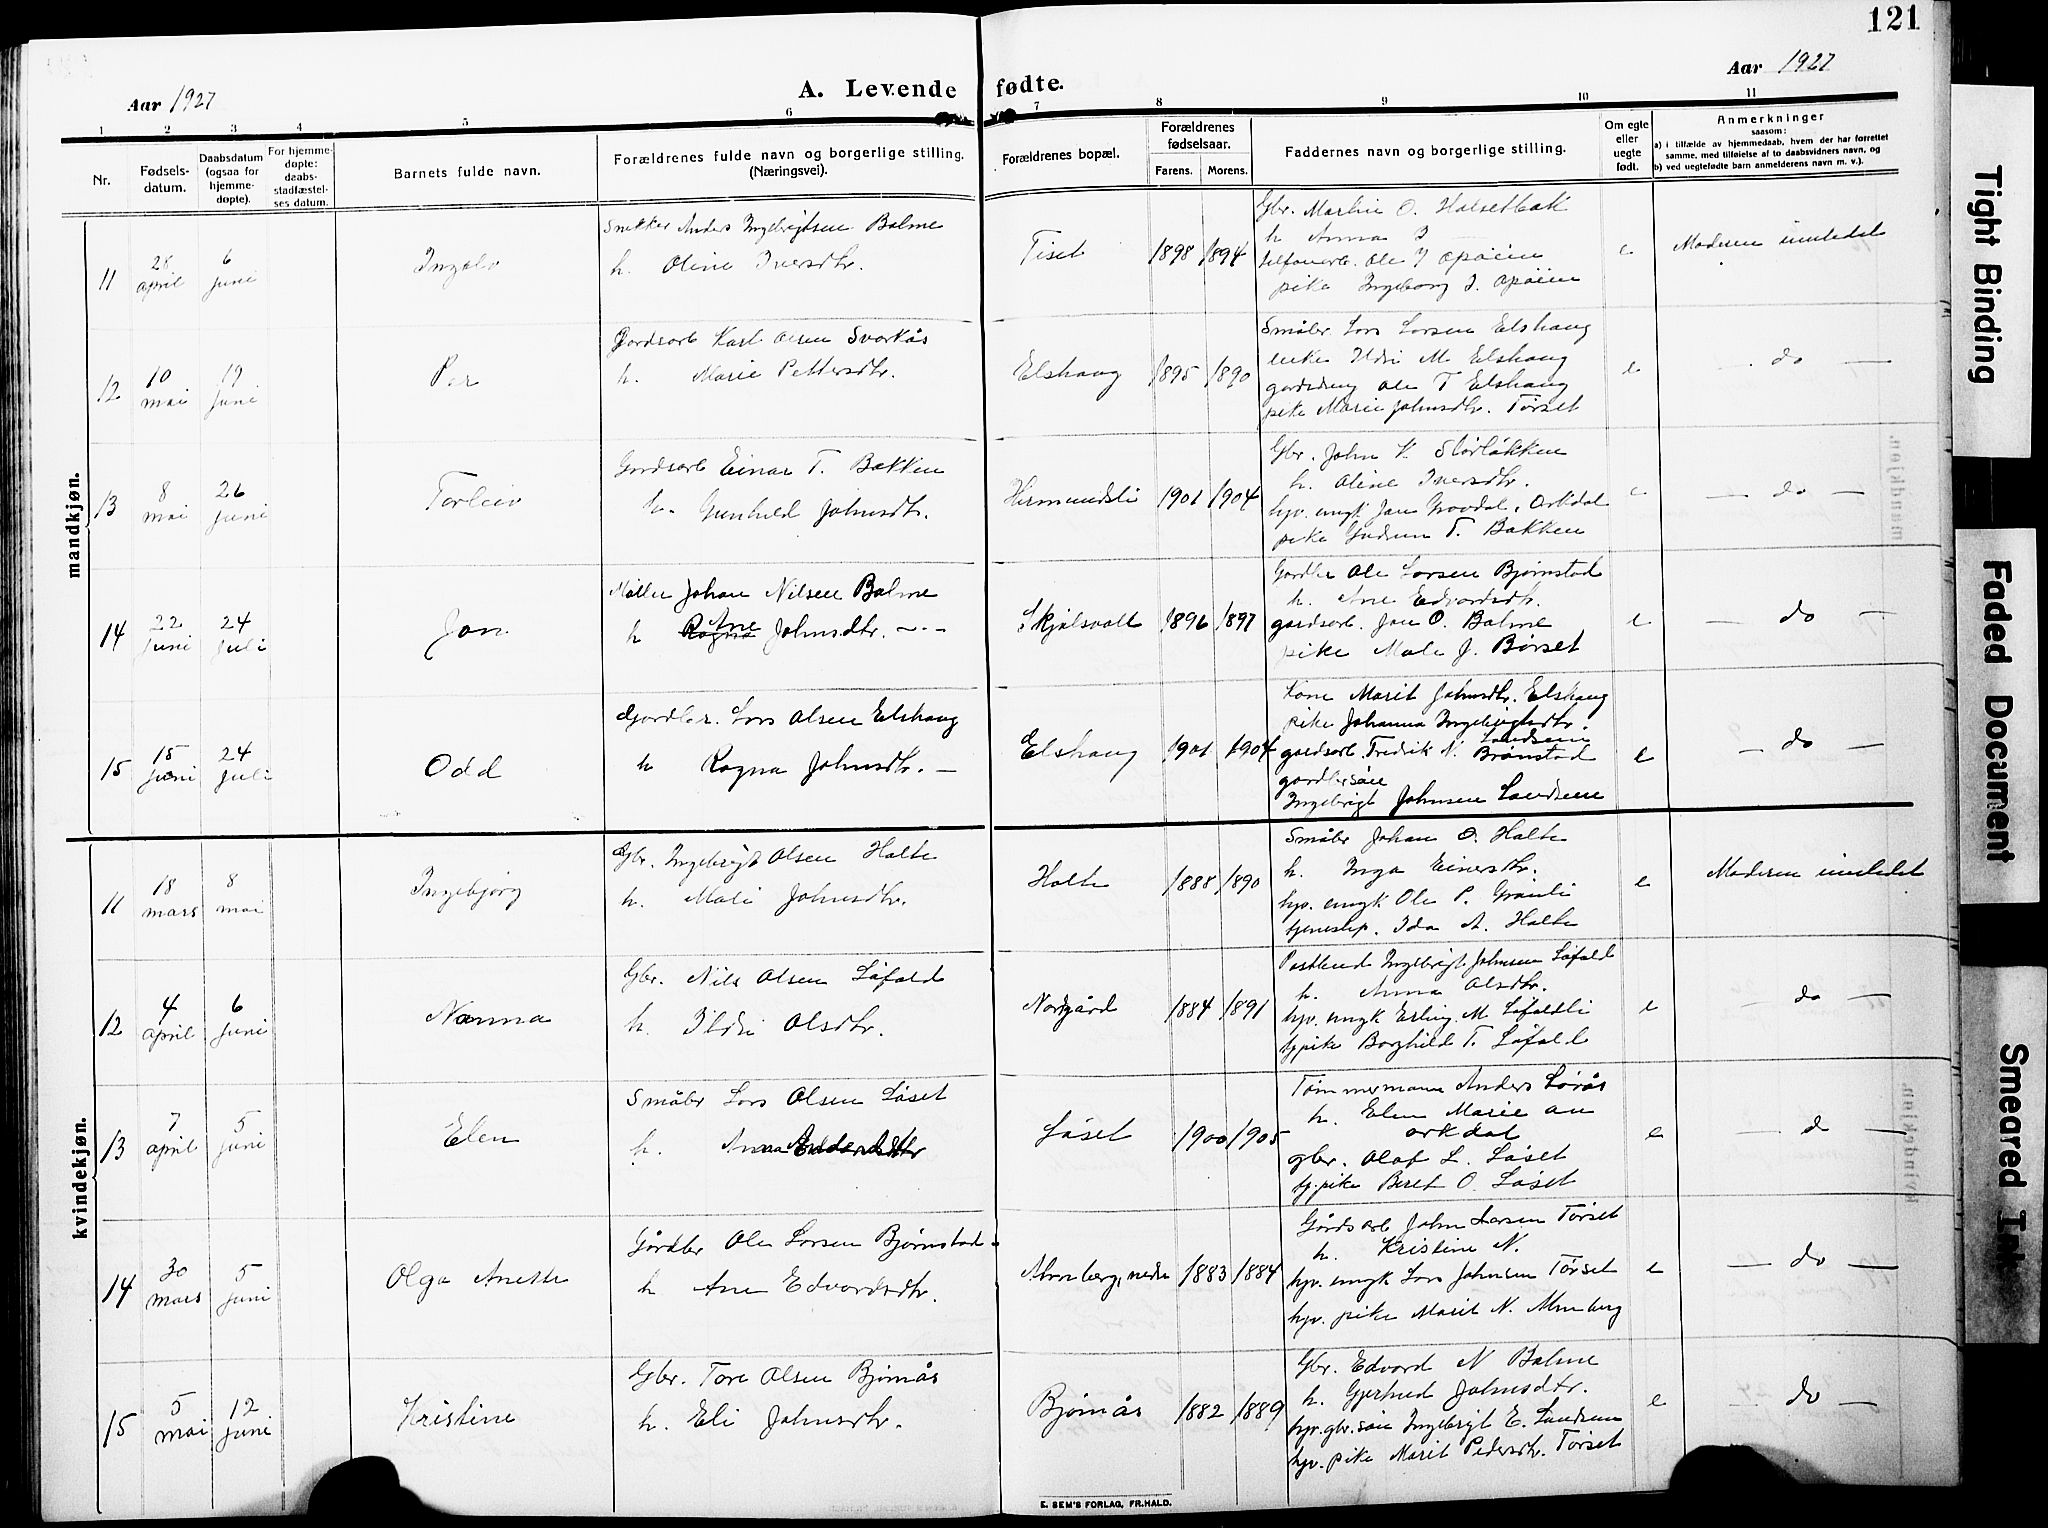 121
Aar 1927
A. Levende fødte.
Aar 1927
1 2 3 4 5 6 7 8 9 10 11
Nr.
Fødsels-
datum.
Daabsdatum
(ogsaa for
hjemme-
døpte).
For hjemme-
døpte:
daabs-
stadfæstel-
ses datum.
Barnets fulde navn.
Forældrenes fulde navn og borgerlige stilling.
(Næringsvei).
Forældrenes bopæl.
Forældrenes
fødselsaar.
Farens. Morens.
Faddernes navn og borgerlige stilling.
Om egte
eller
uegte
født.
Anmerkninger
saasom:
a) i tilfælde av hjemmedaab, hvem der har forrettet
samme, med tilføielse af to daabsvidners navn, og
b) ved uegtefødte barn anmelderens navn m. v.).
mandkjøn.
11
28 april
6 juni
Ingolv
Snekker Anders Ingebrigtsen Bolme
h. Oline Iversdtr.
Tiset
1898 1894
Gbr. Martin O. Halsetbak
h. Anna J
Ole J
pike Ingeborg J.
e
Moderen innledet
12
10 mai
19 juni
Per
Gardsarb Karl Olsen Svorkås
h. Marie Pettersdtr.
Elshaug
1895 1890
Småbr. Lars Larsen Elshaug
enke Ildri M. Elshaug
gardsdreng Ole T Elshaug
pike Marie Johnsdtr. Tørset
e
— do —
13
8 mai
26 juni
Torleiv
Gardsarb Einar T. Bakken
h. Gunhild Johnsdtr.
Hermundsli
1901 1904
Gbr. John K. Størløkken
h. Oline Iversdtr.
hjv. ungk Jon Grovdal, Orkdal
pike Gudrun T. Bakken
e
— do —
14
22 juni
24 juli
Jon
Møller Johan Nilsen Bolme
h Ane Johnsdtr. — -
Skjølsvoll
1896 1897
Gardbr Ole Larsen Bjørnstad
h. Ane Edvardsdtr.
gardsarb. Jon O. Bolme
pike Male J. Børset
e
— do —
15
15 juni
24 juli
Odd
Gardbr. Lars Olsen Elshaug
h Ragna Johnsdtr. —
Elshaug
1901 1904
Kone Marit Johnsdtr. Elshaug
pike Johanna Ingebrigtsdtr.
Landsem
gardsarb. Fredrik N. Brønstad
gardbrsøn
Ingebrigt Johnsen Landsem
e
— do —
kvindekjøn.
11
18 mars
8 mai
Ingebjørg
Gbr. Ingebrigt Olsen Holte
h. Mali Johnsdtr.
Holte
1888 1890
Småbr Johan O. Holte
h. Inga Einersdtr.
hjv. ungk Ole P. Grønli
tjenestep. Ida A. Holte
e
Moderen innledet
12
4 april
6 juni
Nanna
Gbr. Nils Olsen Løfald
h. Ildri Olsdtr.
Nordgård
1884 1891
Postbud Ingebrigt Johnsen Løfald
h. Anna Olsdtr.
hjv. ungk Erling M Løfaldli
tj.pike Borghild T. Løfald
e
— do —
13
7 april
5 juni
Elen
Småbr Lars Olsen Løset
h. Anna
Løset
1900 1905
Tømmermann Anders Lorås
h. Elen Marie
Orkdal
gbr. Olaf L. Løset
tj.pike Beret O. Løset
e
— d —
14
30 mars
5 juni
Olga Anette
Gårdbr Ole Larsen Bjørnstad
h Ane Edvardsdtr.
Almberg, nedre
1883 1884
Gårdsarb John Larsen Tørset
h. Kristine N.
hjv. ungk Lars Johnsen Tørset
hjv. pike Marit N. Almberg
e
— do —
15
5 mai
12 juni
Kristine
Gbr. Tore Olsen Bjørnås
h. Eli Johnsdtr.
Bjørnås
1882 1889
Gbr. Edvard N Bolme
h. Gjertrud Johnsdtr.
hjv. gbr. søn Ingebrigt E. Landsem
hjv. pike Marit Pedersdtr. Tørset
e
— do —
E. SEM'S FORLAG, FR.HALD.
Tight Binding
Faded Document
Smeared Ink